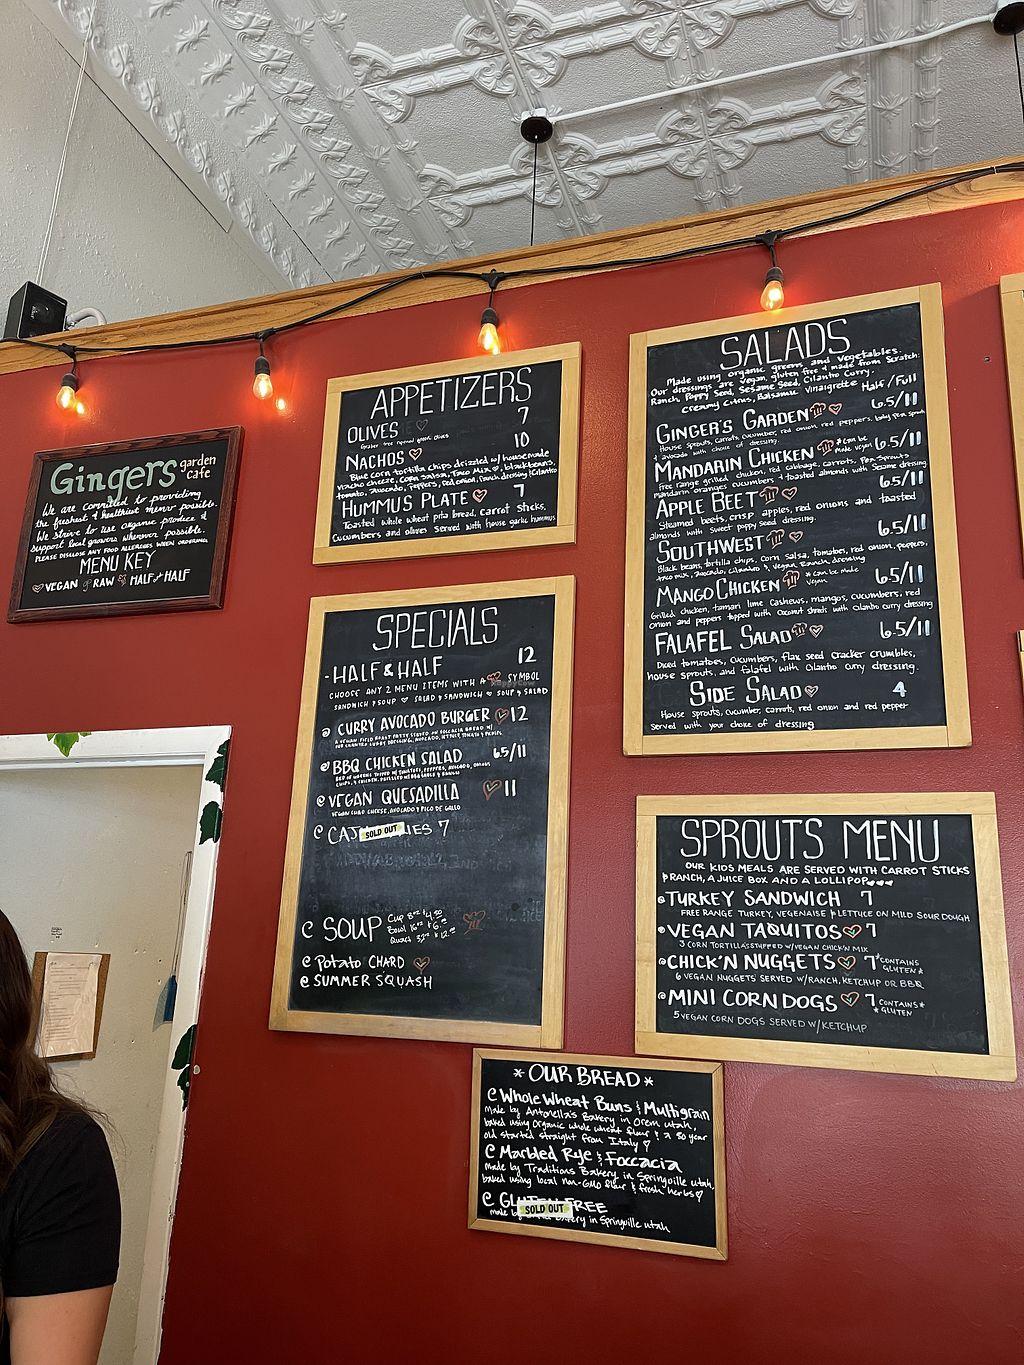 Gingers garden cafe
We are committed to providing
the freshest & healthiest menu possible.
We strive to use organic produce &
support local growers wherever possible.
PLEASE DISCLOSE ANY FOOD ALLERGIES WHEN ORDERING
MENU KEY
VEGAN RAW HALF & HALF
APPETIZERS
OLIVES 7
NACHOS 10
Blue corn tortilla chips drizzled w/ housemade
nacho cheeze, corn salsa, Taco Mix, blackbeans,
tomato, avocado, Peppers, red onion, Ranch dressing & Cilantro
HUMMUS PLATE 7
Toasted whole wheat pita bread, carrot sticks,
cucumbers and olives served with house garlic hummus
SPECIALS
-HALF & HALF 12
CHOOSE ANY 2 MENU ITEMS WITH A SYMBOL
SANDWICH & SOUP SALAD & SANDWICH SOUP & SALAD
CURRY AVOCADO BURGER 12
A VEGAN FIELD ROAST PATTY SERVED ON FOCCACIA BREAD W/
OUR CILANTRO CURRY DRESSING, AVOCADO, LETTUCE, TOMATO & PICKLES
BBQ CHICKEN SALAD 6.5/11
VEGAN QUESADILLA 11
VEGAN CHAO CHEESE, AVOCADO & PICO DE GALLO
CAJ SOLD OUT IES 7
SOUP Cup 8oz $4.50
Bowl 16oz $6.50
Quart 32oz $12.00
Potato CHARD
SUMMER SQUASH
SALADS
Made using organic greens and vegetables.
Our dressings are vegan, gluten free & made from Scratch:
Ranch, Poppy Seed, Sesame Seed, Cilantro Curry,
Creamy Citrus, Balsamic Vinaigrette Half/Full
GINGER'S GARDEN 6.5/11
House sprouts, carrots, cucumber, red onion, red peppers, baby pea sprouts
& avocado with choice of dressing.
MANDARIN CHICKEN *can be make vegan 6.5/11
Free range grilled chicken, red cabbage, carrots, Pea Sprouts
mandarin oranges cucumbers & toasted almonds with Sesame dressing
APPLE BEET 6.5/11
Steamed beets, crisp apples, red onions and toasted
almonds with Sweet poppyseed dressing.
SOUTHWEST 6.5/11
Black beans, tortilla chips, corn salsa, tomatoes, red onion, peppers,
taco mix, avocado, cilantro & vegan Ranch dressing
MANGO CHICKEN *can be made vegan 6.5/11
Grilled chicken, tamari lime cashews, mangos, cucumbers, red
onion and peppers topped with coconut shreds with cilantro curry dressing
FALAFEL SALAD 6.5/11
Diced tomatoes, cucumbers, flax seed cracker crumbles,
house sprouts, and falafel with cilantro curry dressing.
SIDE SALAD 4
House sprouts, cucumber, carrots, red onion and red pepper
served with your choice of dressing
SPROUTS MENU
OUR KIDS MEALS ARE SERVED WITH CARROT STICKS
& RANCH, A JUICE BOX AND A LOLLIPOP
TURKEY SANDWICH 7
FREE RANGE TURKEY, VEGENAISE & LETTUCE ON MILD SOURDOUGH
VEGAN TAQUITOS 7
3 CORN TORTILLAS STUFFED W/VEGAN CHICK'N MIX
CHICK'N NUGGETS 7 *CONTAINS GLUTEN*
6 VEGAN NUGGETS SERVED W/RANCH, KETCHUP OR BBQ
MINI CORN DOGS 7 CONTAINS* *GLUTEN
5 VEGAN CORN DOGS SERVED W/KETCHUP
*OUR BREAD*
Whole Wheat Buns & Multigrain
made by Antonella's Bakery in Orem utah,
baked using organic whole wheat flour & a 80 year
old started straight from Italy
Marbled Rye & Foccacia
made by Traditions Bakery in Springville utah,
baked using local non-GMO flour & fresh herbs
GLUTEN FREE
SOLD OUT
made by Bakery in Springville utah